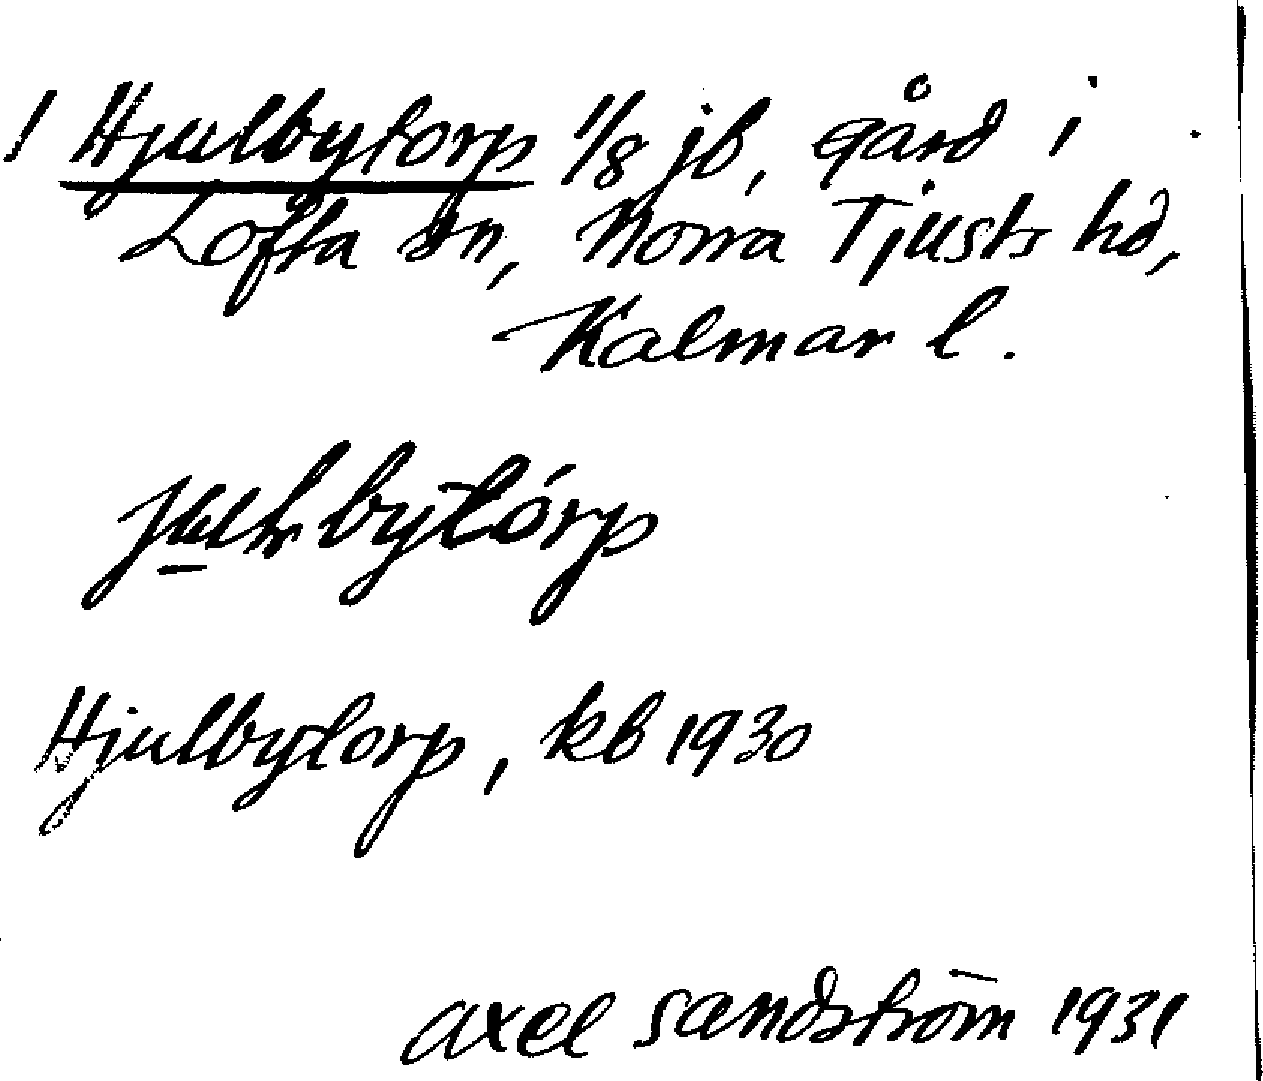 ! Hjulbytorp 1/8 jb, gård i
Lofta sn, Norra Tjusts hd,
Kalmar l.
Hjulbytorp, kb 1930
Axel Sandström 1931